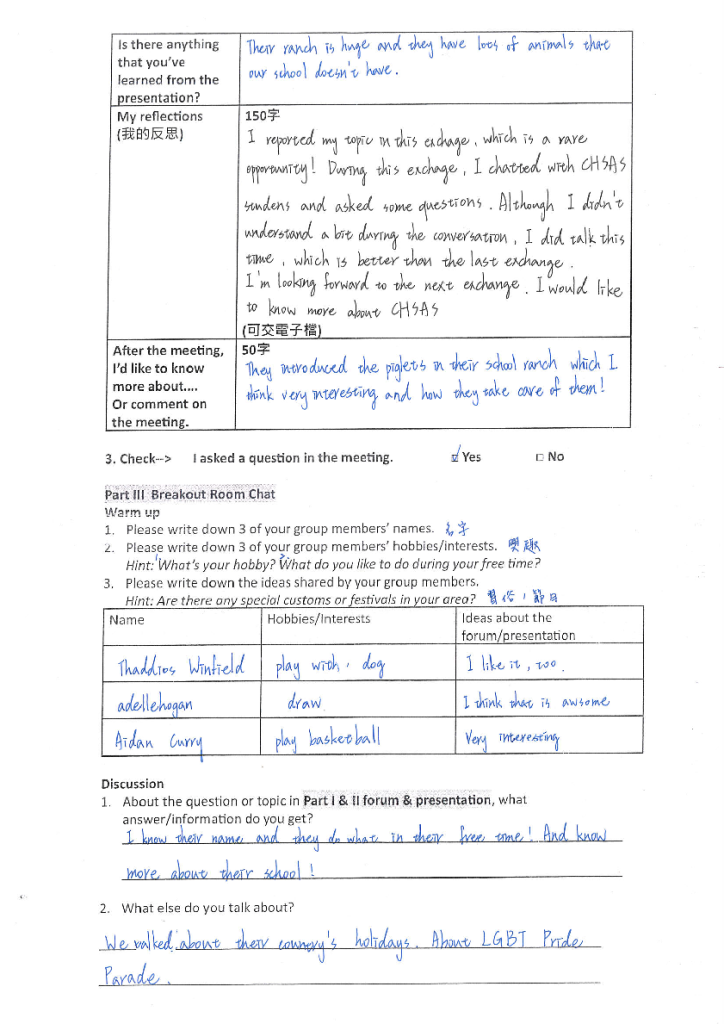 Is there anything that you've learned from the presentation?
Their ranch is huge and they have lots of animals that
our school doesn't have.
My reflections
(我的反思)
150字
I reported my topic in this exchage, which is a rare
opportunity! During this exchage, I chatted with CHSAS
sendens and asked some questions. Although I didn't
understand a bit during the conversation, I did talk this
time, which is better than the last exchange.
I'm looking forward to the next exchange. I would like
to know more about CHSAS
(可交電子檔)
After the meeting, I'd like to know more about.... Or comment on the meeting.
50字
They introduced the piglets in their school ranch which I
think very interesting and how they take care of them!
3. Check--> I asked a question in the meeting. ☑ Yes □ No
Part III Breakout Room Chat
Warm up
1. Please write down 3 of your group members' names. 名字
2. Please write down 3 of your group members' hobbies/interests. 興趣
Hint: What's your hobby? What do you like to do during your free time?
3. Please write down the ideas shared by your group members.
Hint: Are there any special customs or festivals in your area? 習俗,節日
Name Hobbies/Interests Ideas about the forum/presentation
Thaddios Winfield play with dog I like it, too.
adellehogan draw I think that is awsome
Aidan Curry play basketball Very interesting
Discussion
1. About the question or topic in Part I & II forum & presentation, what
answer/information do you get?
I know their name and they do what in their free time! And know
more about their school!
2. What else do you talk about?
We talked about their country's holidays. About LGBT Pride
Parade.